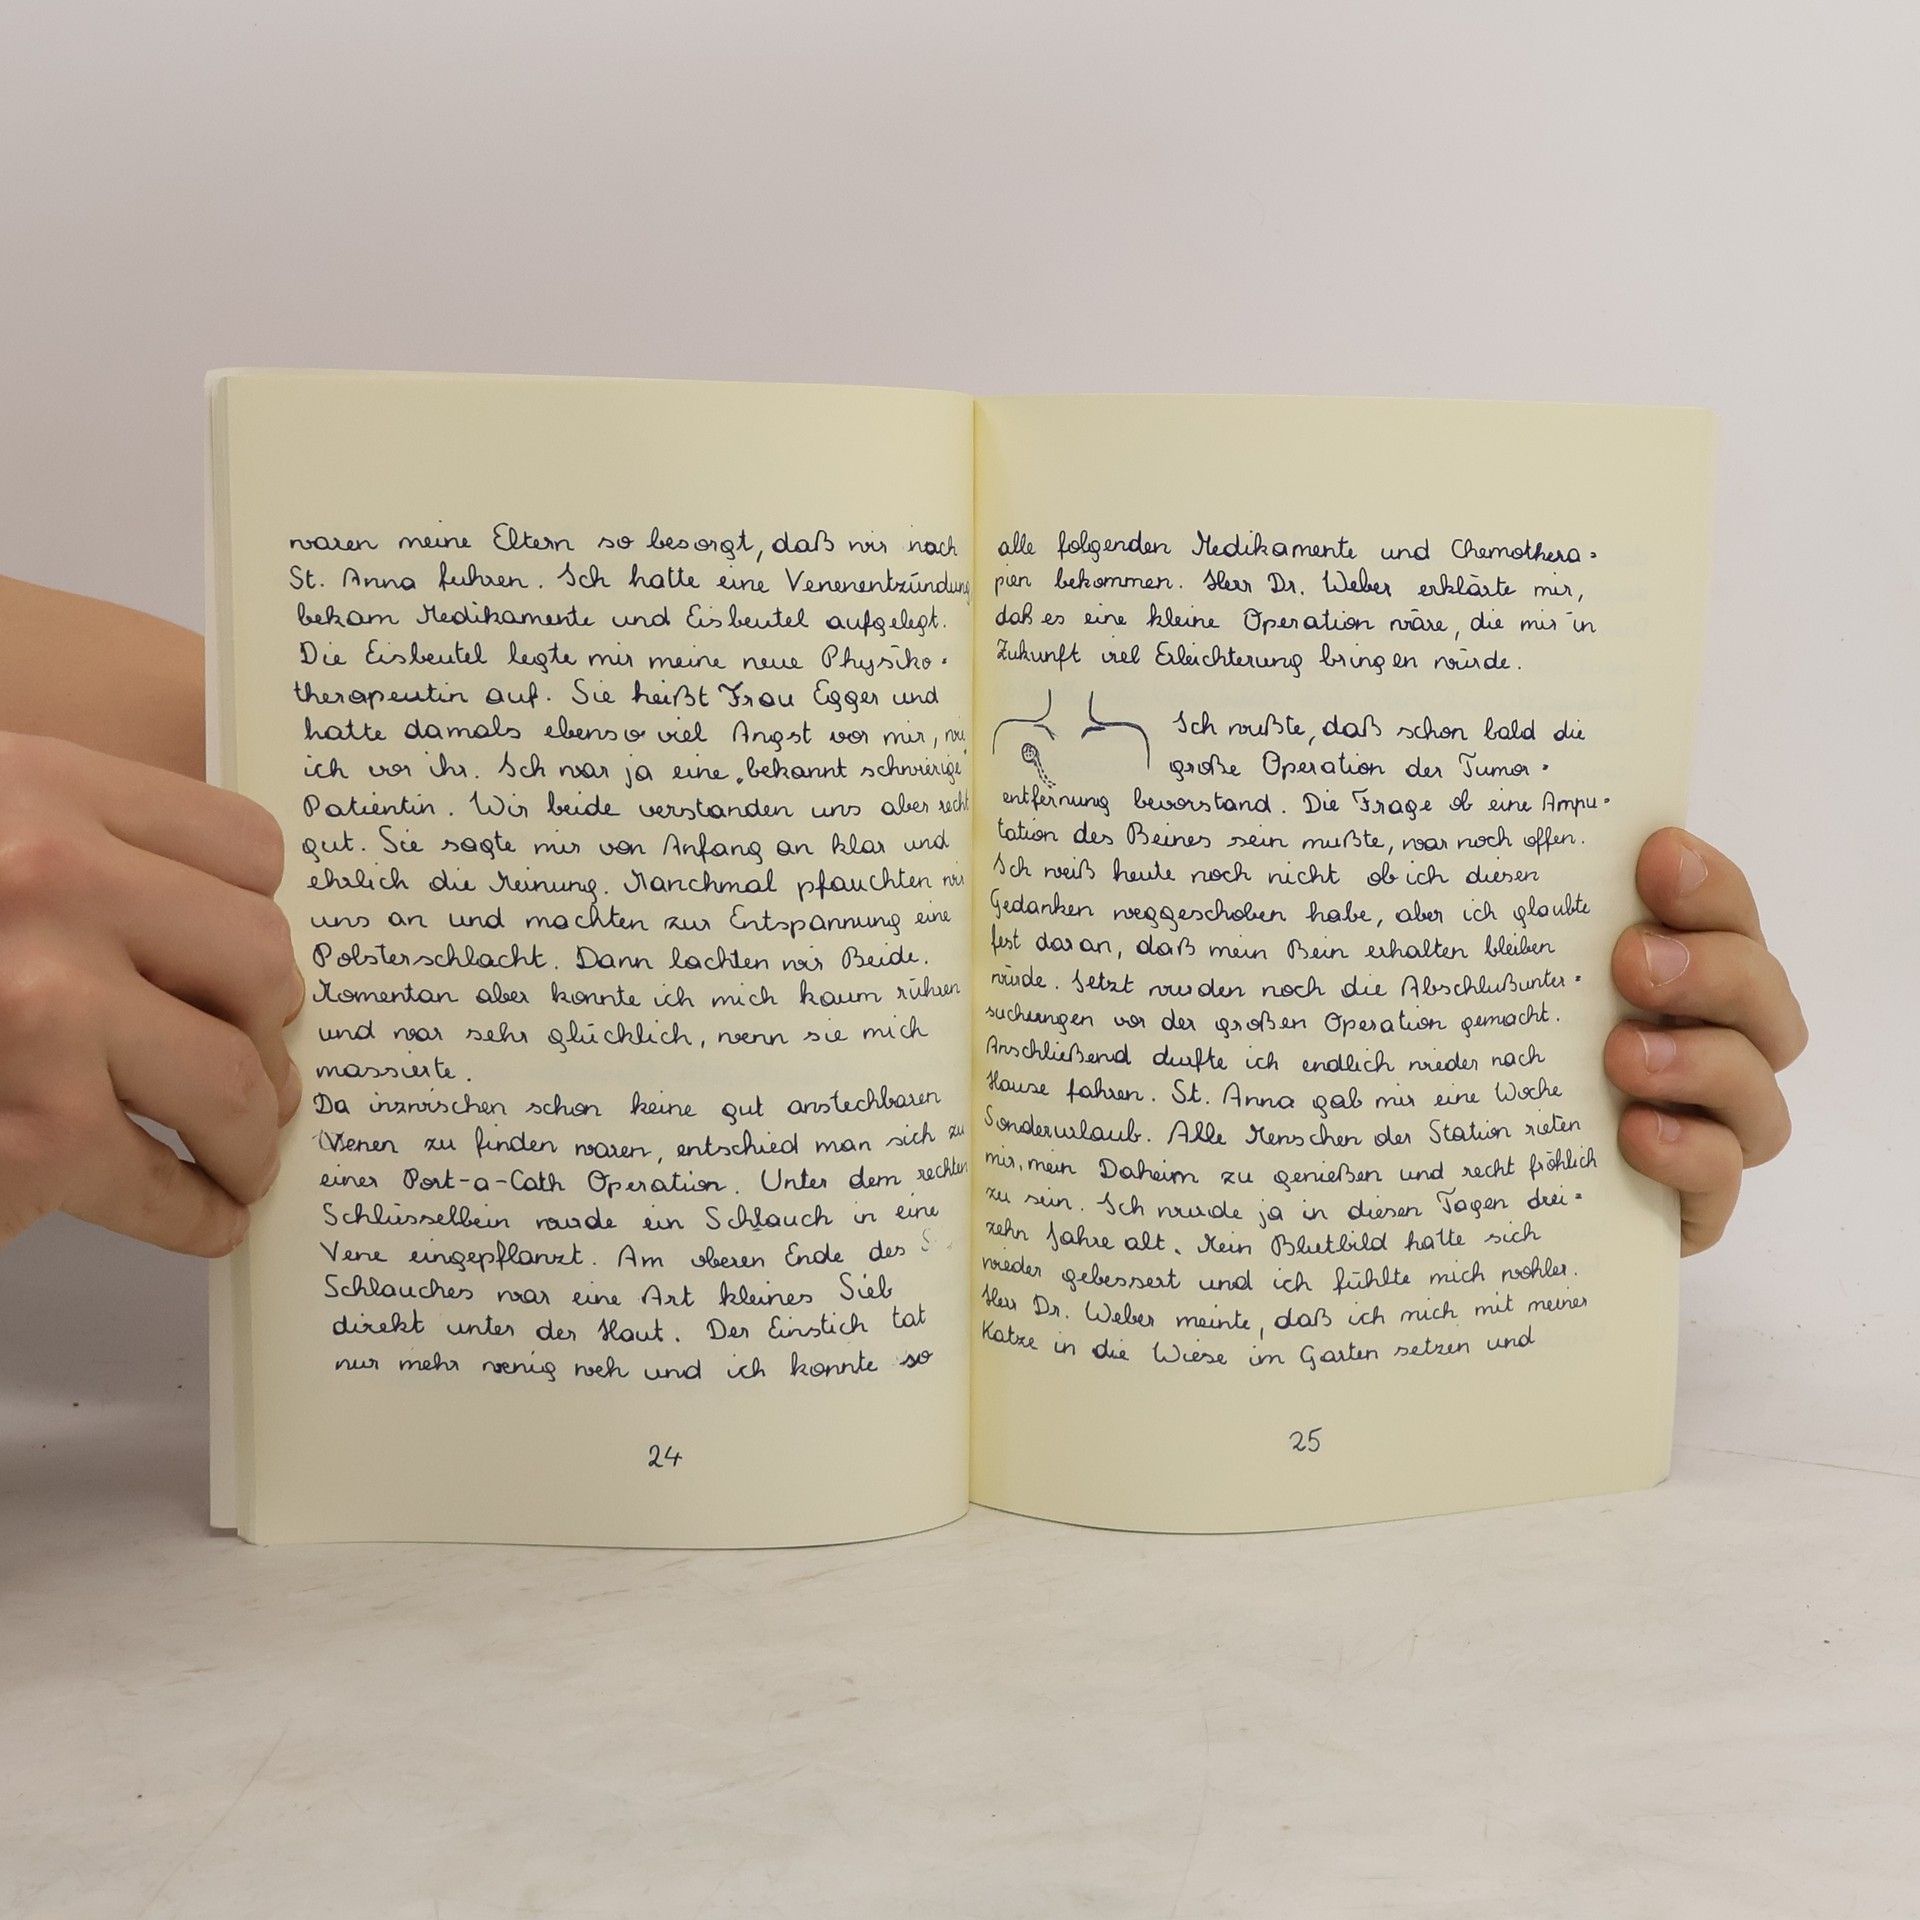 waren meine Eltern so besorgt, daß wir nach
St. Anna fuhren. Ich hatte eine Venenentzündung
bekam Medikamente und Eisbeutel aufgelegt.
Die Eisbeutel legte mir meine neue Physiko=
therapeutin auf. Sie heißt Frau Egger und
hatte damals ebenso viel Angst vor mir, wie
ich vor ihr. Ich war ja eine „bekannt schwierige"
Patientin. Wir beide verstanden uns aber recht
gut. Sie sagte mir von Anfang an klar und
ehrlich die Meinung. Manchmal pfauchten wir
uns an und machten zur Entspannung eine
Polsterschlacht. Dann lachten wir Beide.
Momentan aber konnte ich mich kaum rühren
und war sehr glücklich, wenn sie mich
massierte.
Da inzwischen schon keine gut anstechbaren
Venen zu finden waren, entschied man sich zu
einer Port-a-Cath Operation. Unter dem rechten
Schlüsselbein wurde ein Schlauch in eine
Vene eingepflanzt. Am oberen Ende des
Schlauches war eine Art kleines Sieb
direkt unter der Haut. Der Einstich tat
nur mehr wenig weh und ich konnte so
24
alle folgenden Medikamente und Chemothera=
pien bekommen. Herr Dr. Weber erklärte mir,
daß es eine kleine Operation wäre, die mir in
Zukunft viel Erleichterung bringen würde.
Ich wußte, daß schon bald die
große Operation der Tumor=
entfernung bevorstand. Die Frage ob eine Ampu=
tation des Beines sein mußte, war noch offen.
Ich weiß heute noch nicht ob ich diesen
Gedanken weggeschoben habe, aber ich glaubte
fest daran, daß mein Bein erhalten bleiben
würde. Jetzt wurden noch die Abschlußunter=
suchungen vor der großen Operation gemacht.
Anschließend durfte ich endlich wieder nach
Hause fahren. St. Anna gab mir eine Woche
Sonderurlaub. Alle Menschen der Station rieten
mir, mein Daheim zu genießen und recht fröhlich
zu sein. Ich wurde ja in diesen Tagen drei=
zehn Jahre alt. Mein Blutbild hatte sich
wieder gebessert und ich fühlte mich wohler.
Herr Dr. Weber meinte, daß ich mich mit meiner
Katze in die Wiese im Garten setzen und
25